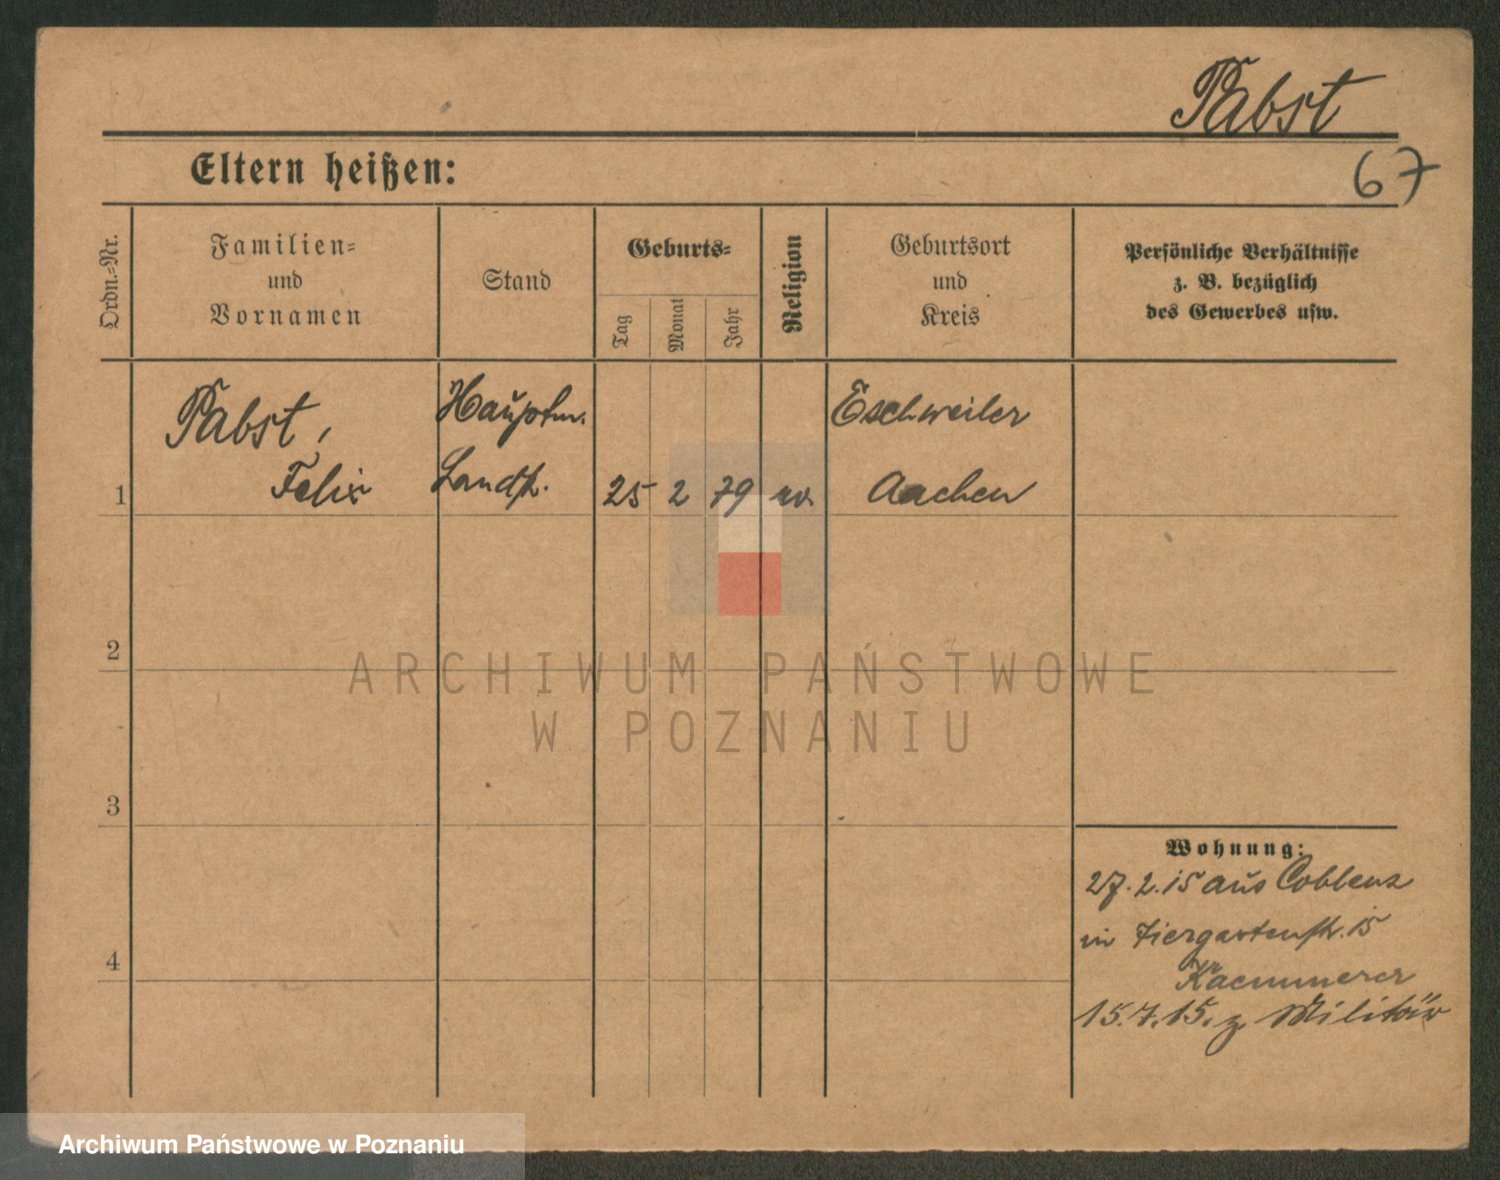 Pabst
Eltern heißen:
67
Ordn.=Nr.
Familien=
und
Vornamen
Stand
Geburts=
Tag
Monat
Jahr
Religion
Geburtsort
und
Kreis
Persönliche Verhältnisse
z. B. bezüglich
des Gewerbes usw.
1
Pabst,
Felix
Hauptm.
25
2
79
ev.
Eschweiler
Aachen
2
3
4
Wohnung:
27.2.15 aus Coblenz
in Tiergartenstr. 15
Kaemmerer
15.7.15. z. Militär
ARCHIWUM PAŃSTWOWE
W POZNANIU
Archiwum Państwowe w Poznaniu